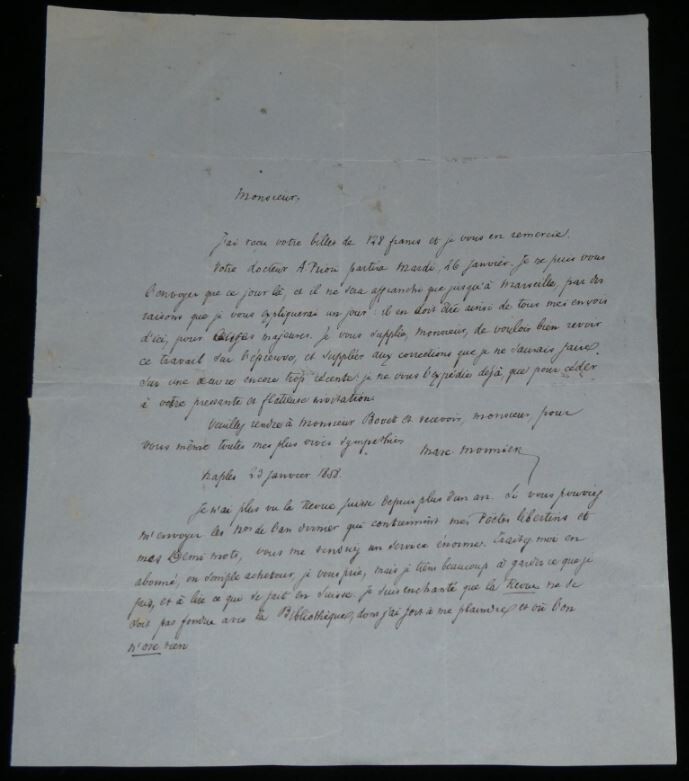 Monsieur,
J'ai reçu votre billet de 128 francs et je vous en remercie.
Votre docteur A Priori partira Mardi, 26 janvier. Je ne puis vous
l'envoyer que ce jour là, et il ne sera affranchi que jusqu'à Marseille, par des
raisons que je vous expliquerai un jour : il en doit être ainsi de tous mes envois
d'ici, pour causes majeures. Je vous supplie, monsieur, de vouloir bien revoir
ce travail sur l'épreuve, et suppléer aux corrections que je ne saurais faire
sur une œuvre encore trop récente : je ne vous l'expédie déjà que pour céder
à votre pressante et flatteuse invitation.
Veuillez rendre à Monsieur Bovet et recevoir, monsieur, pour
vous même toutes mes plus vives sympathies
Marc Monnier
Naples 23 janvier 1858.
Je n'ai plus vu la Revue Suisse depuis plus d'un an. Si vous pouviez
m'envoyer les Nos de l'an dernier qui contiennent mes Poètes libertins et
mes Demi mots, vous me rendriez un service énorme. Traitez moi en
abonné, en simple acheteur, je vous prie, mais je tiens beaucoup à garder ce que je
fais, et à lire ce que se fait en Suisse. Je suis enchanté que la Revue ne se
soit pas fondue avec la Bibliothèque, dont j'ai fort à me plaindre et où l'on
n'ose rien